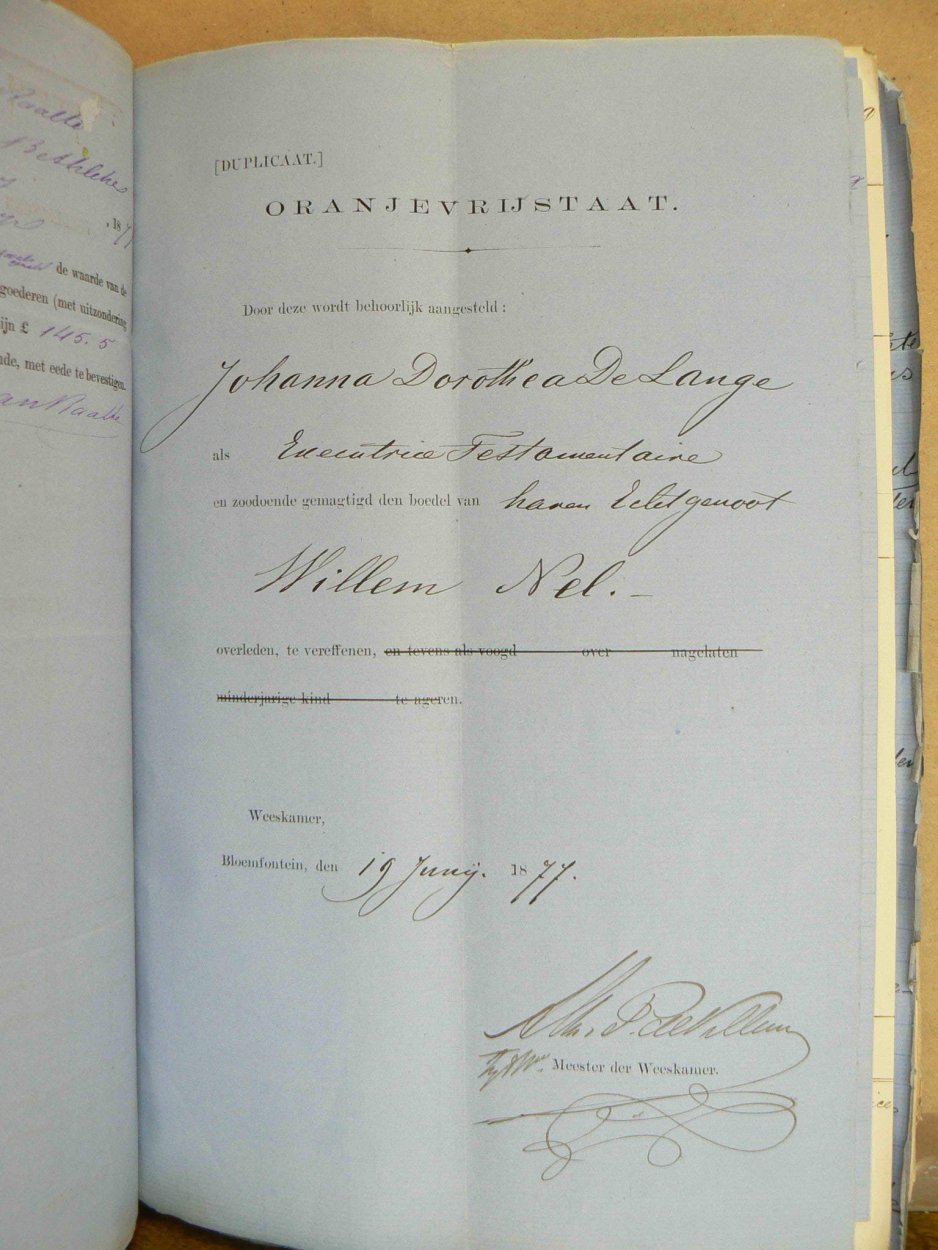 Bethlehem
, 1871
de waarde van de
goederen (met uitzondering
ijn £ 145. 5
nde, met eede te bevestigen.
van Raalte
[DUPLICAAT.]
ORANJEVRIJSTAAT.
Door deze wordt behoorlijk aangesteld :
Johanna Dorothea De Lange
als Executrice Testamentaire
en zoodoende gemagtigd den boedel van haren Echtgenoot
Willem Nel. —
overleden, te vereffenen, en tevens als voogd over nagelaten
minderjarige kind te ageren.
Weeskamer,
Bloemfontein, den 19 Junij. 1877.
P. de Villiers
Meester der Weeskamer.